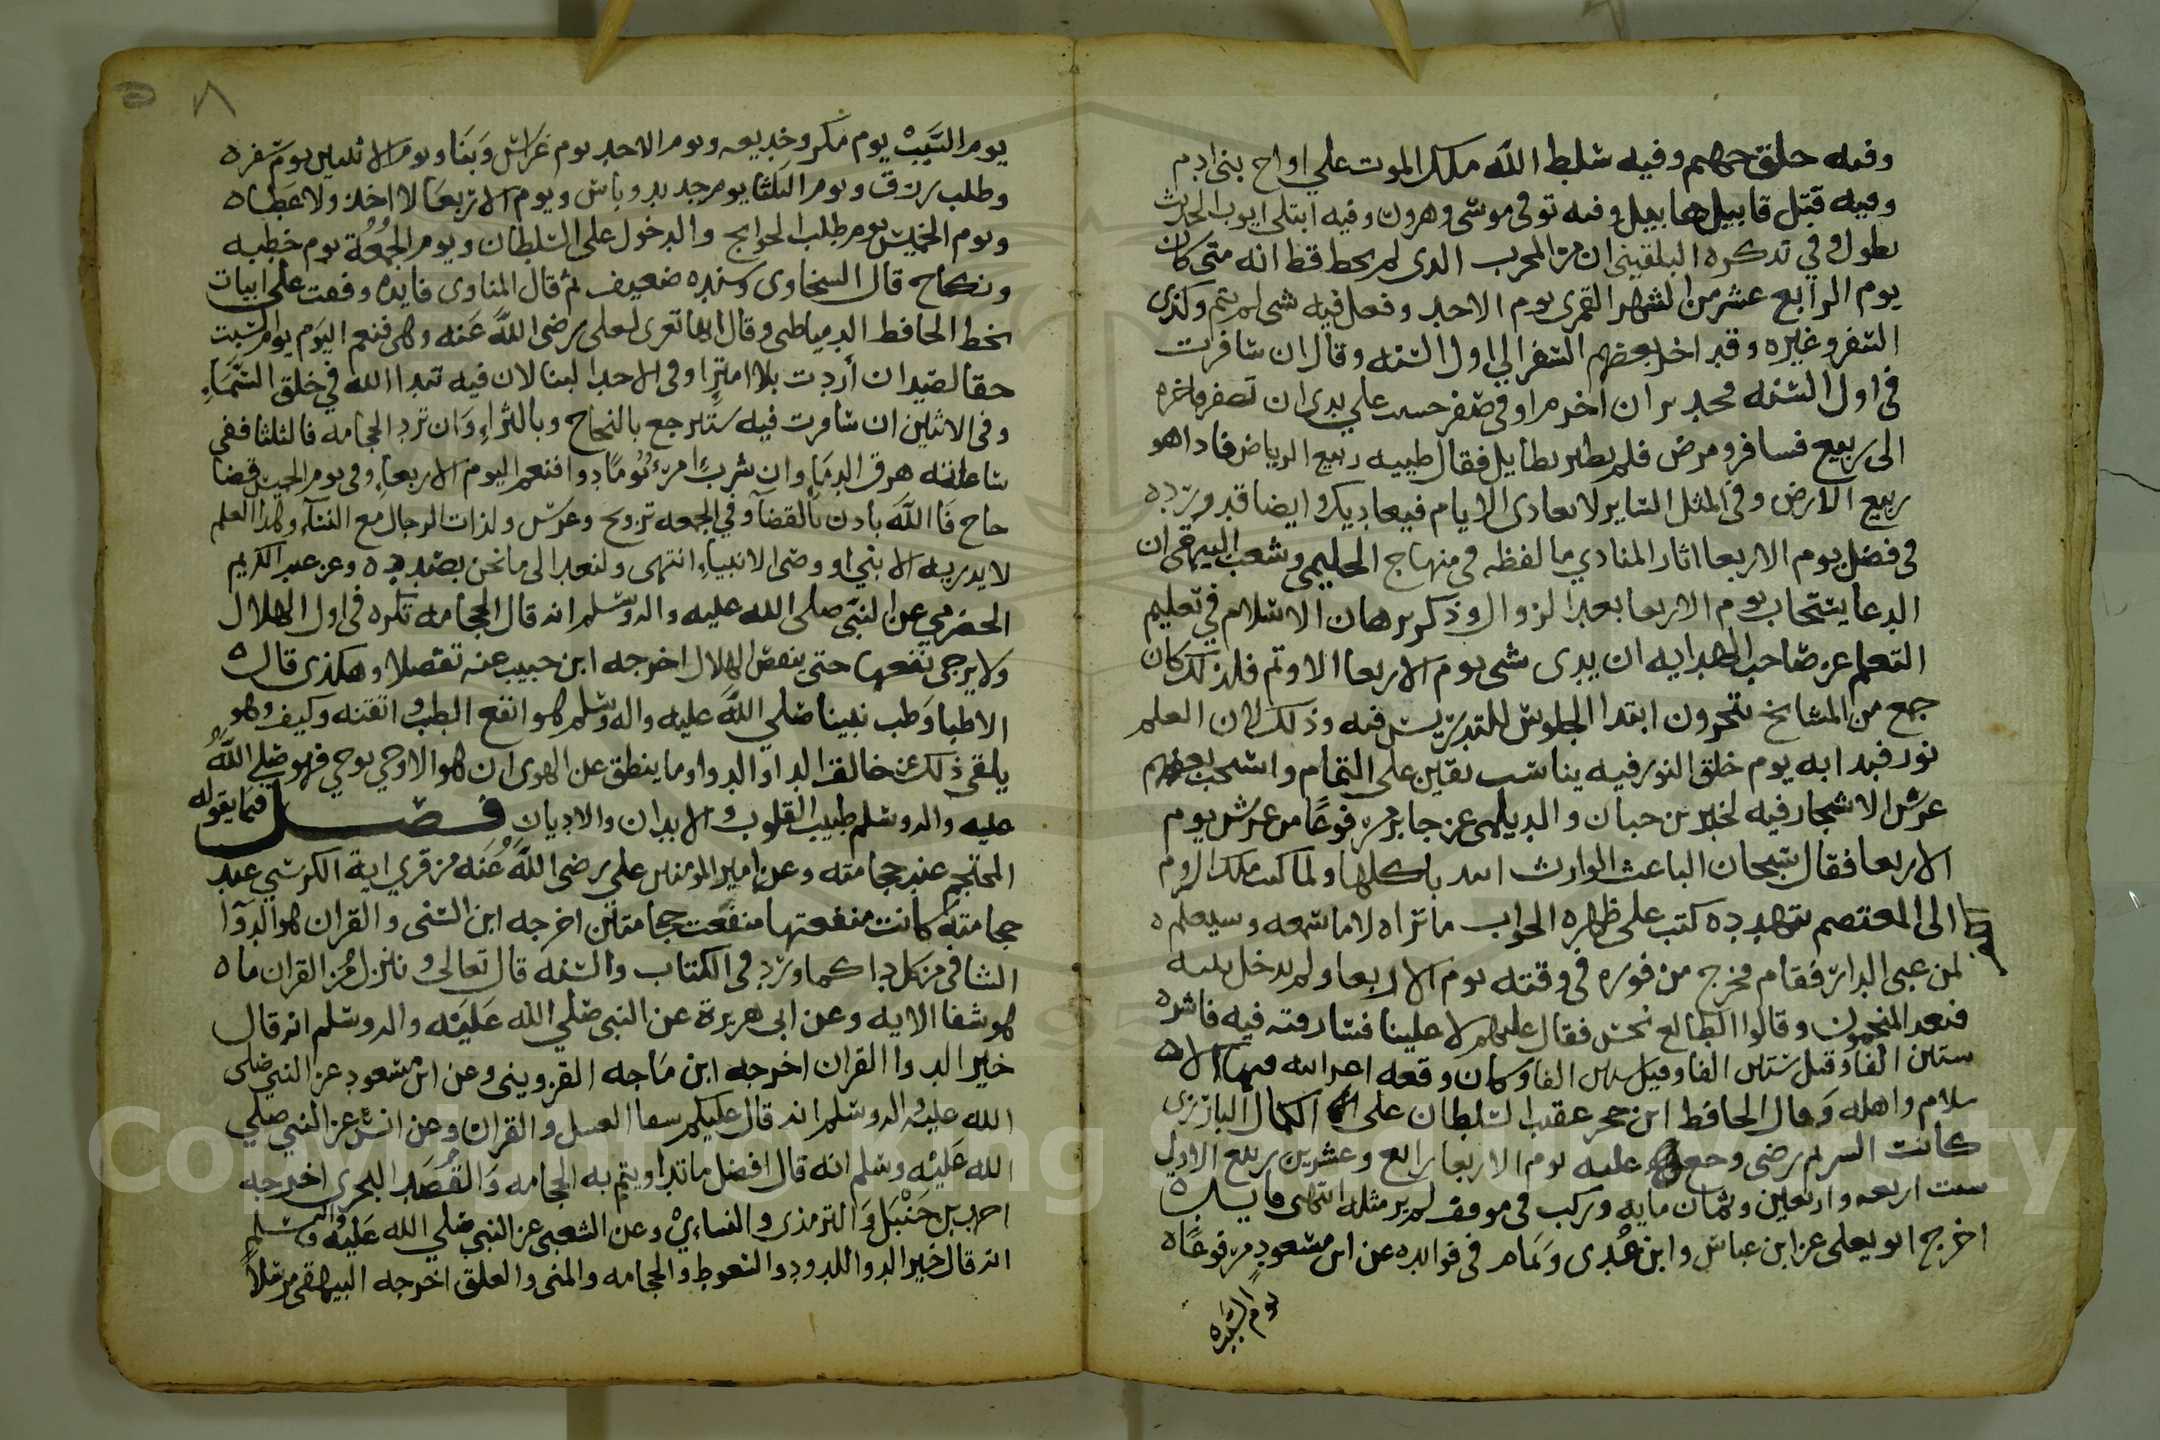 وفيه خلق جهنم وفيه سلط الله ملك الموت علي ارواح بني ادم
وفيه قتل قابيل هابيل وفيه توفى موسى وهرون وفيه ابتلى ايوب الحديث
بطوله وفي تذكره البلقيني ان من المجرب الذى لم يخط قط انه متى كان
يوم الرابع عشر من الشهر القمرى يوم الاحد وفعل فيه شى لم يتم وكذى
السفر وغيره وقد اخر بعضهم السفر الي اول السنه وقال ان سافرت
فى اول السنه فجدير ان احرم او فى صفر خشيت على يدى ان تصفر فاخره
الى ربيع فسافر ومرض فلم يظفر بطايل فقال ظننته ربيع الرياض فاذا هو
ربيع الامراض وفى المثل الساير لا تعادى الايام فتعاديك وايضا قد ورد ه
فى فضل يوم الاربعا اثار المنادي ما لفظه فى منهاج الحليمى وشعب البيهقى ان
الدعا يستجاب يوم الاربعا بعد الزوال وذكر برهان الاسلام في تعليم
التعلم عن صاحب الهدايه ان ما بدى شى يوم الاربعا الا وتم فلذلك كان
جمع من المشايخ يتحرون ابتدا الجلوس للتدريس فيه وذلك لان العلم
نور فبدا به يوم خلق النور فيه يناسب يقين على التمام واستحب بعضهم
غرس الاشجار فيه لخبر بن حبان والديلمى عن جابر مرفوعًا من غرس يوم
الاربعا فقال سبحان الباعث الوارث اتته باكلها ولما كتب ملك الروم
الى المعتصم يتهدده كتب على ظهره الجواب ما تراه لا ما تسمعه وسيعلم ه
لمن عقبى الدار فقام فخرج من فوره فى وقته يوم الاربعا ولم يدخل بيته
فنعه المنجمون وقالوا الطالع نحس فقال عليهم لا علينا فسار وقته فيه فاسره
ستين الفا وقتل ستين الفا وقيل ستين الفا وكان وقعه اعز الله فيها الا ه
سلام واهله وقال الحافظ ابن حجر عقب السلطان على الكمال البارزى
كاتب السر ثم رضى وخلع عليه يوم الاربعا رابع وعشرين ربيع الاول
سنت اربعه واربعين وثمان مايه وركب فى موقف لم ير مثله انتهى فايده
اخرج ابو يعلى عن ابن عباس وابن عدى وتمام فى فوايده عن ابن مسعود مرفوعًا ه
يوم السبت
يوم السَّبْت يوم مكر وخديعه ويوم الاحد يوم غراس وبنا ويوم الاثنين يوم سفره
وطلب رزق ويوم الثلثا يوم حديد وباس ويوم الاربعا لا اخذ ولا عطا ه
ويوم الخميس يوم طلب الحوايج والدخول على السلطان ويوم الجمعة يوم خطبه
ونكاح قال السخاوى وسنده ضعيف ثم قال المناوى فايده وقفت على ابيات
بخط الحافظ الدمياطى وقال انها تعزى لعلى رضى الله عنه وهى فنعم اليوم يوم السبت
حقا لصيد ان أردت بلا امترا وفى الاحد البنا لان فيه تبدا الله في خلق السَّمَاءِ
وفى الاثنين ان سافرت فيه سترجع بالنجاح وبالثراءِ وان ترد الحجامه فالثلثا ففى
ساعاته هرق الدماءِ وان شرب امرءٌ يومًا دوا فنعم اليوم الاربعاءِ وفى يوم الخميس قضا
حاج فالله ياذن بالقضآ وفي الجمعه تزويج وعرس ولذات الرجال مع النسآء وهذا العلم
لا يدريه الا نبي او وصى الانبياءِ انتهى ولنعد الى ما نحن بصدده وعن عبد الكريم
الحضرمى عن النبى صلى الله عليه واله وسلم انه قال الحجامه تكره فى اول الهلال
ولا يرجى نفعها حتى ينقص الهلال اخرجه ابن حبيب عنه تفصلا وهكذى قال ه
الاطبا وطب نبينا صلي الله عليه واله وسلم هو انفع الطب واتقنه وكيف وهو
يلقى ذلك عن خالق الدا والدوا وما ينطق عن الهوى ان هو الا وحي يوحي فهو صلي اللهُ
عليه واله وسلم طبيب القلوب والابدان والاديان فصل فيما يقوله
المحتجم عند حجامته وعن امير المومنين علي رضى الله عنه من قرى اية الكرسي عند
حجامته كانت منفعتها منفعت حجامتين اخرجه ابن السنى والقران هو الدوآ
الشافى من كل دا كما ورد فى الكتاب والسنه قال تعالى وننزل من القران ما ه
هو شفا الايه وعن ابى هريرة عن النبى صلي الله عليه واله وسلم انه قال
خير الدوا القران اخرجه ابن ماجه القزوينى وعن ابن مسعود عن النبي صلى
الله عليه واله وسلم انه قال عليكم بشفا العسل والقران وعن انس عن النبي صلي
الله عليه وسلم انه قال افضل ما تداويتم به الحجامه والقصد البحرى اخرجه
احمد بن حَنْبَل والترمذى والنساءي وعن الشعبى عن النبي صلي الله عليه واله وسلم
انه قال خير الدوا اللدود والسعوط والحجامه والمشى والعلق اخرجه البيهقى مرسلاً